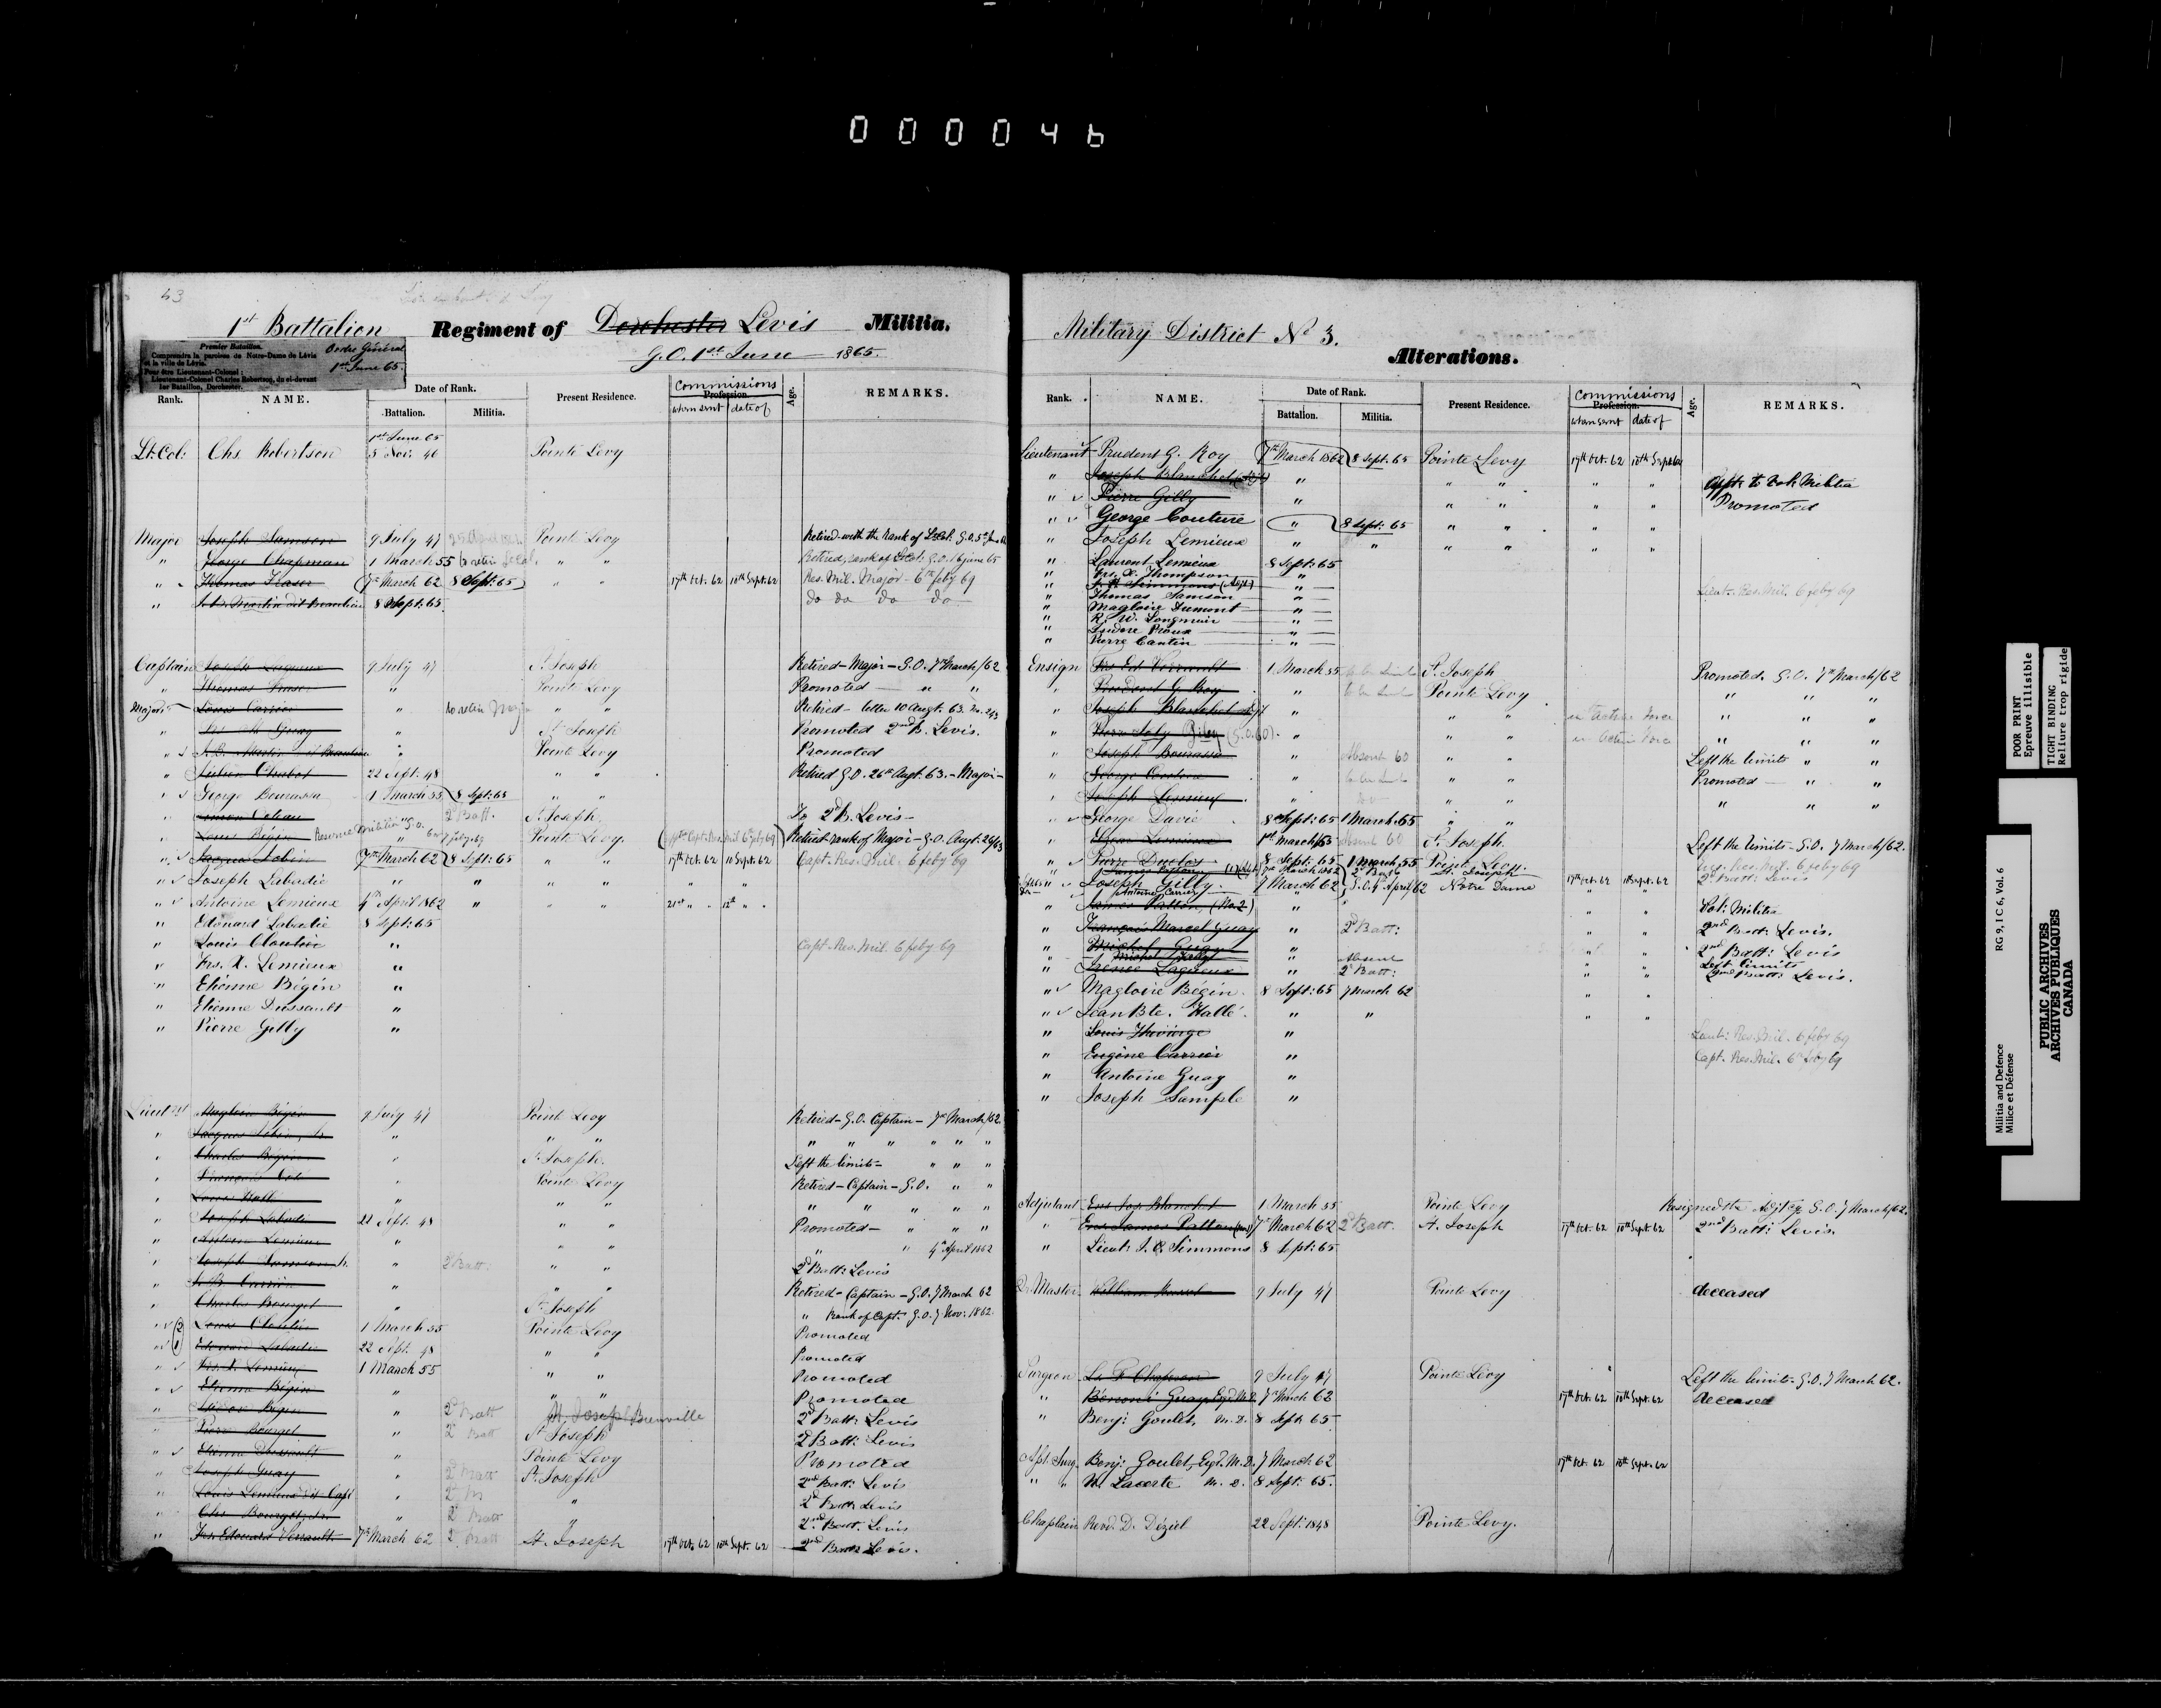 000046
43
1st Battalion Regiment of Dorchester Levis Militia.
G.O. 1st June 1865.
Premier Bataillon.
Ordre Général
1st June 65.
Comprendra la paroisse de Notre-Dame de Lévis
et la ville de Lévis.
Pour être Lieutenant-Colonel :
Lieutenant-Colonel Charles Robertson, du ci-devant
1er Bataillon, Dorchester.
Rank. NAME. Date of Rank. Battalion. Militia. Present Residence. Commissions Profession. when sent date of Age. REMARKS.
1st June 65
Lt. Col: Chs. Robertson 5 Nov. 40 Pointe Levy
Major Joseph Samson 9 July 47 Pointe Levy Retired with the rank of Lt Col. G.O. 5th
" George Chapman 1 March 55 to retire " " Retired, rank of Lt Col: G.O. 16 June 65
" Thomas Fraser 7th March 62 8 Sept: 65 " " 17th Oct. 62 10th Sept: 62 Res. Mil. Major - 6th feby 69
" J. Bte Martin dit Beaulieu 8 Sept: 65. do do do do
Captain Joseph Lagueux 9 July 47 St. Joseph Retired - Major - G.O. 7th March/62
" Thomas Fraser " Pointe Levy Promoted " "
Major Louis Carrier " to retire Major " " Retired - letter 10 Augt. 63. No. 243
" Guay " St Joseph Promoted 2nd B. Levis.
" J. B. Martin dit Beaulieu " Pointe Levy Promoted
" Julien Chabot 22 Sept. 48 " " Retired G.O. 26th Augt. 63. - Major -
" George Bourassa 1 March 55 8 Sept: 65 " "
" Simon Oleau 2d Batt. St. Joseph. To 2d B. Levis -
" Louis Bégin Reserve Militia G.O. " Pointe Levy. Retired - rank of Major - G.O. Augt. 26/63
" Jacques Jobin 7th March 62 8 Sept: 65 " " 17th Oct. 62 11 Sept: 62 Capt. Res. Mil. 6 feby 69
" Joseph Labadie " " " " " "
" Antoine Lemieux 4th April 1862 " " " 21st " " 12th " "
" Edouard Labadie 8 Sept: 65
" Louis Cloutier " Capt. Res. Mil. 6 feby 69
" Frs. X. Lemieux "
" Etienne Bégin "
" Etienne Dussault "
" Pierre Gilly "
Lieutenant Magloire Bégin 9 July 47 Pointe Levy Retired - G.O. Captain - 7th March/62.
" Jacques Jobin, " " " " " " " " "
" Charles Bégin " St. Joseph. Left the limits - " " "
" François " Pointe Levy Retired - Captain - G.O. " "
" Louis Hallé " " " " " " " " "
" Joseph Labadie 22 Sept. 48 " " Promoted - " " "
" Antoine Lemieux " " " " " 4th April 1862
" Joseph Samson " 2d Batt: " " 2d Batt: Levis
" J. B. Carrier " " " Retired - Captain - G.O. 7 March 62
" Charles Bourget " St. Joseph " Rank of Capt. G.O. 7 Nov: 1862.
" 2 Louis Cloutier 1 March 55 Pointe Levy Promoted
" 1 Edouard Labadie 22 Sept. 48 " " Promoted
" Frs. X. Lemieux 1 March 55 " " Promoted
" Etienne Bégin " " " Promoted
" Bégin " 2d Batt St. Joseph Bienville 2d Batt: Levis
" Pierre Bourget " 2d Batt St. Joseph 2d Batt: Levis
" Etienne Dussault " Pointe Levy Promoted
" Joseph Guay " 2d Batt St. Joseph 2nd Batt: Levis
" Louis Lemieux dit Capt " 2d " 2d Batt: Levis
" Chs. Bourget, " 2d Batt " 2nd Batt. Levis
" Frs. Edouard Verrault 7th March 62 2d Batt St. Joseph 17th Oct. 62 10th Sept. 62 2nd Batt: Levis.
Military District No 3.
Alterations.
Rank. NAME. Date of Rank. Battalion. Militia. Present Residence. Commissions Profession. when sent date of Age. REMARKS.
Lieutenant Prudent G. Roy 7th March 1862 8 Sept. 65 Pointe Levy 17th Oct. 62 10th Sept 62
" Joseph Blanchet " " " " " Appt. to Vol. Militia
" Pierre Gilly " " " " " Promoted
" George Couture " 8 Sept: 65 " " " "
" Joseph Lemieux " " " " " "
" Laurent Lemieux 8 Sept: 65
" Frs. X. Thompson "
" Simmons (Adjt) " Lieut. Res. Mil. 6 feby 69
" Thomas Samson "
" Magloire Dumont "
" R. W. Longmuir "
" Isidore "
" Pierre Cantin "
Ensign Frs. Ed. Verrault 1 March 55 St. Joseph Promoted. G.O. 7th March/62
" Prudent G. Roy " Pointe Levy " " "
" Joseph Blanchet " " " in Active Force " " "
" Gilly (G.O. 60). " " " in Active Force " " "
" Joseph Bourassa " Absent 60 " " Left the limits " "
" George Couture " " " Promoted - " "
" Joseph Lemieux " " " " " "
" George Davie 8 Sept: 65 1 March 65 " "
" Lemieux 1st March 55 Absent 60 St. Joseph. Left the limits - G.O. 7 March/62.
" Pierre 8 Sept. 65 1 March 55 Pointe Levy. Res. Mil. 6 feby 69
" James Patton 7th March 1862 2d Batt St. Joseph 2d Batt: Levis
" Joseph Gilly. 7 March 62 G.O. 4 April/62 Notre Dame 17th Oct. 62 11 Sept. 62
Antoine Carrier
" James Patton, (No. 2) " " " Vol: Militia
" François Marcel Guay " 2d Batt: " " 2nd Batt: Levis.
" Michel Guay " " " 2nd Batt: Levis
" Michel " Absent Left limits
" Lagueux " 2d Batt: " " 2nd Batt: Levis.
" Magloire Bégin 8 Sept: 65 7 March 62 " "
" Jean Bte. Hallé. " " " "
" Louis Thivierge " Lieut: Res. Mil. 6 feby 69
" Eugène Carrier " Capt. Res. Mil. 6th feby 69
" Antoine Guay "
" Joseph Sample "
Adjutant Ens. Jos. Blanchet 1 March 55 Pointe Levy Resigned the Adjtcy G.O. 7 March/62.
" Ens. James Patton 7th March 62 2d Batt. St. Joseph 17th Oct. 62 10th Sept. 62 2nd Batt: Levis.
" Lieut: Simmons 8 Sept: 65
Qr Master William 9 July 47 Pointe Levy deceased
Surgeon 9 July 47 Pointe Levy Left the limits - G.O. 7 March 62.
" Bénoni Guay, Esqr. M.D. 7th March 62 17th Oct. 62 10th Sept. 62 deceased
" Benj: Goulet, M.D. 8 Sept. 65.
Asst. Surg. Benj: Goulet, Esqr. M.D. 7 March 62 17th Oct. 62 10th Sept. 62
" " Lacerte M.D. 8 Sept. 65.
Chaplain Revd. D. Déziel 22 Sept: 1848 Pointe Levy.
POOR PRINT
Epreuve illisible
TIGHT BINDING
Reliure trop rigide
RG 9, I C 6, Vol. 6
Militia and Defence
Milice et Défense
PUBLIC ARCHIVES
ARCHIVES PUBLIQUES
CANADA